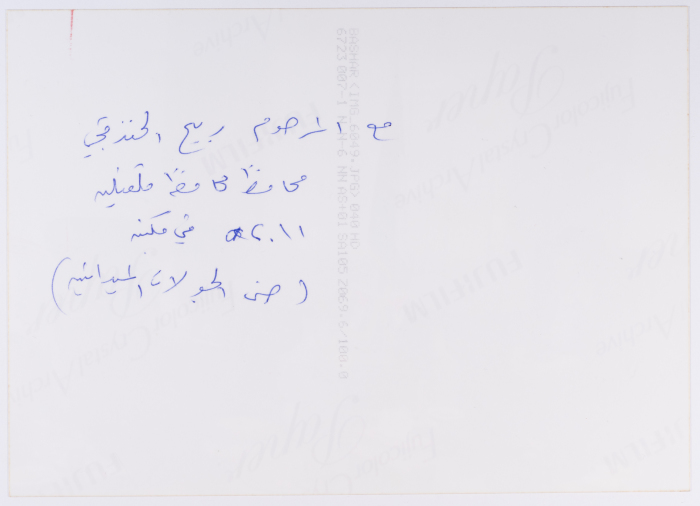 مع المرحوم ربيح الخندقجي
محافظ محافظة قلقيلية
٢٠١١ في مكتبه
(ضمن الجولات الميدانية)
FUJIFILM
Fujicolor Crystal Archive
Paper